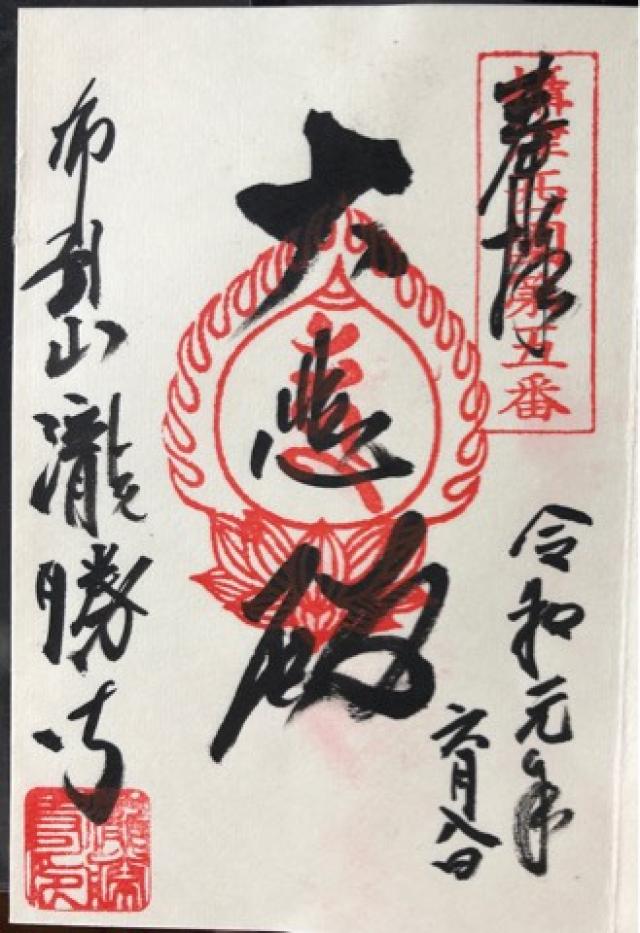 奉拝
摂津西国第五番
令和元年
六月八日
大悲殿
布引山瀧勝寺